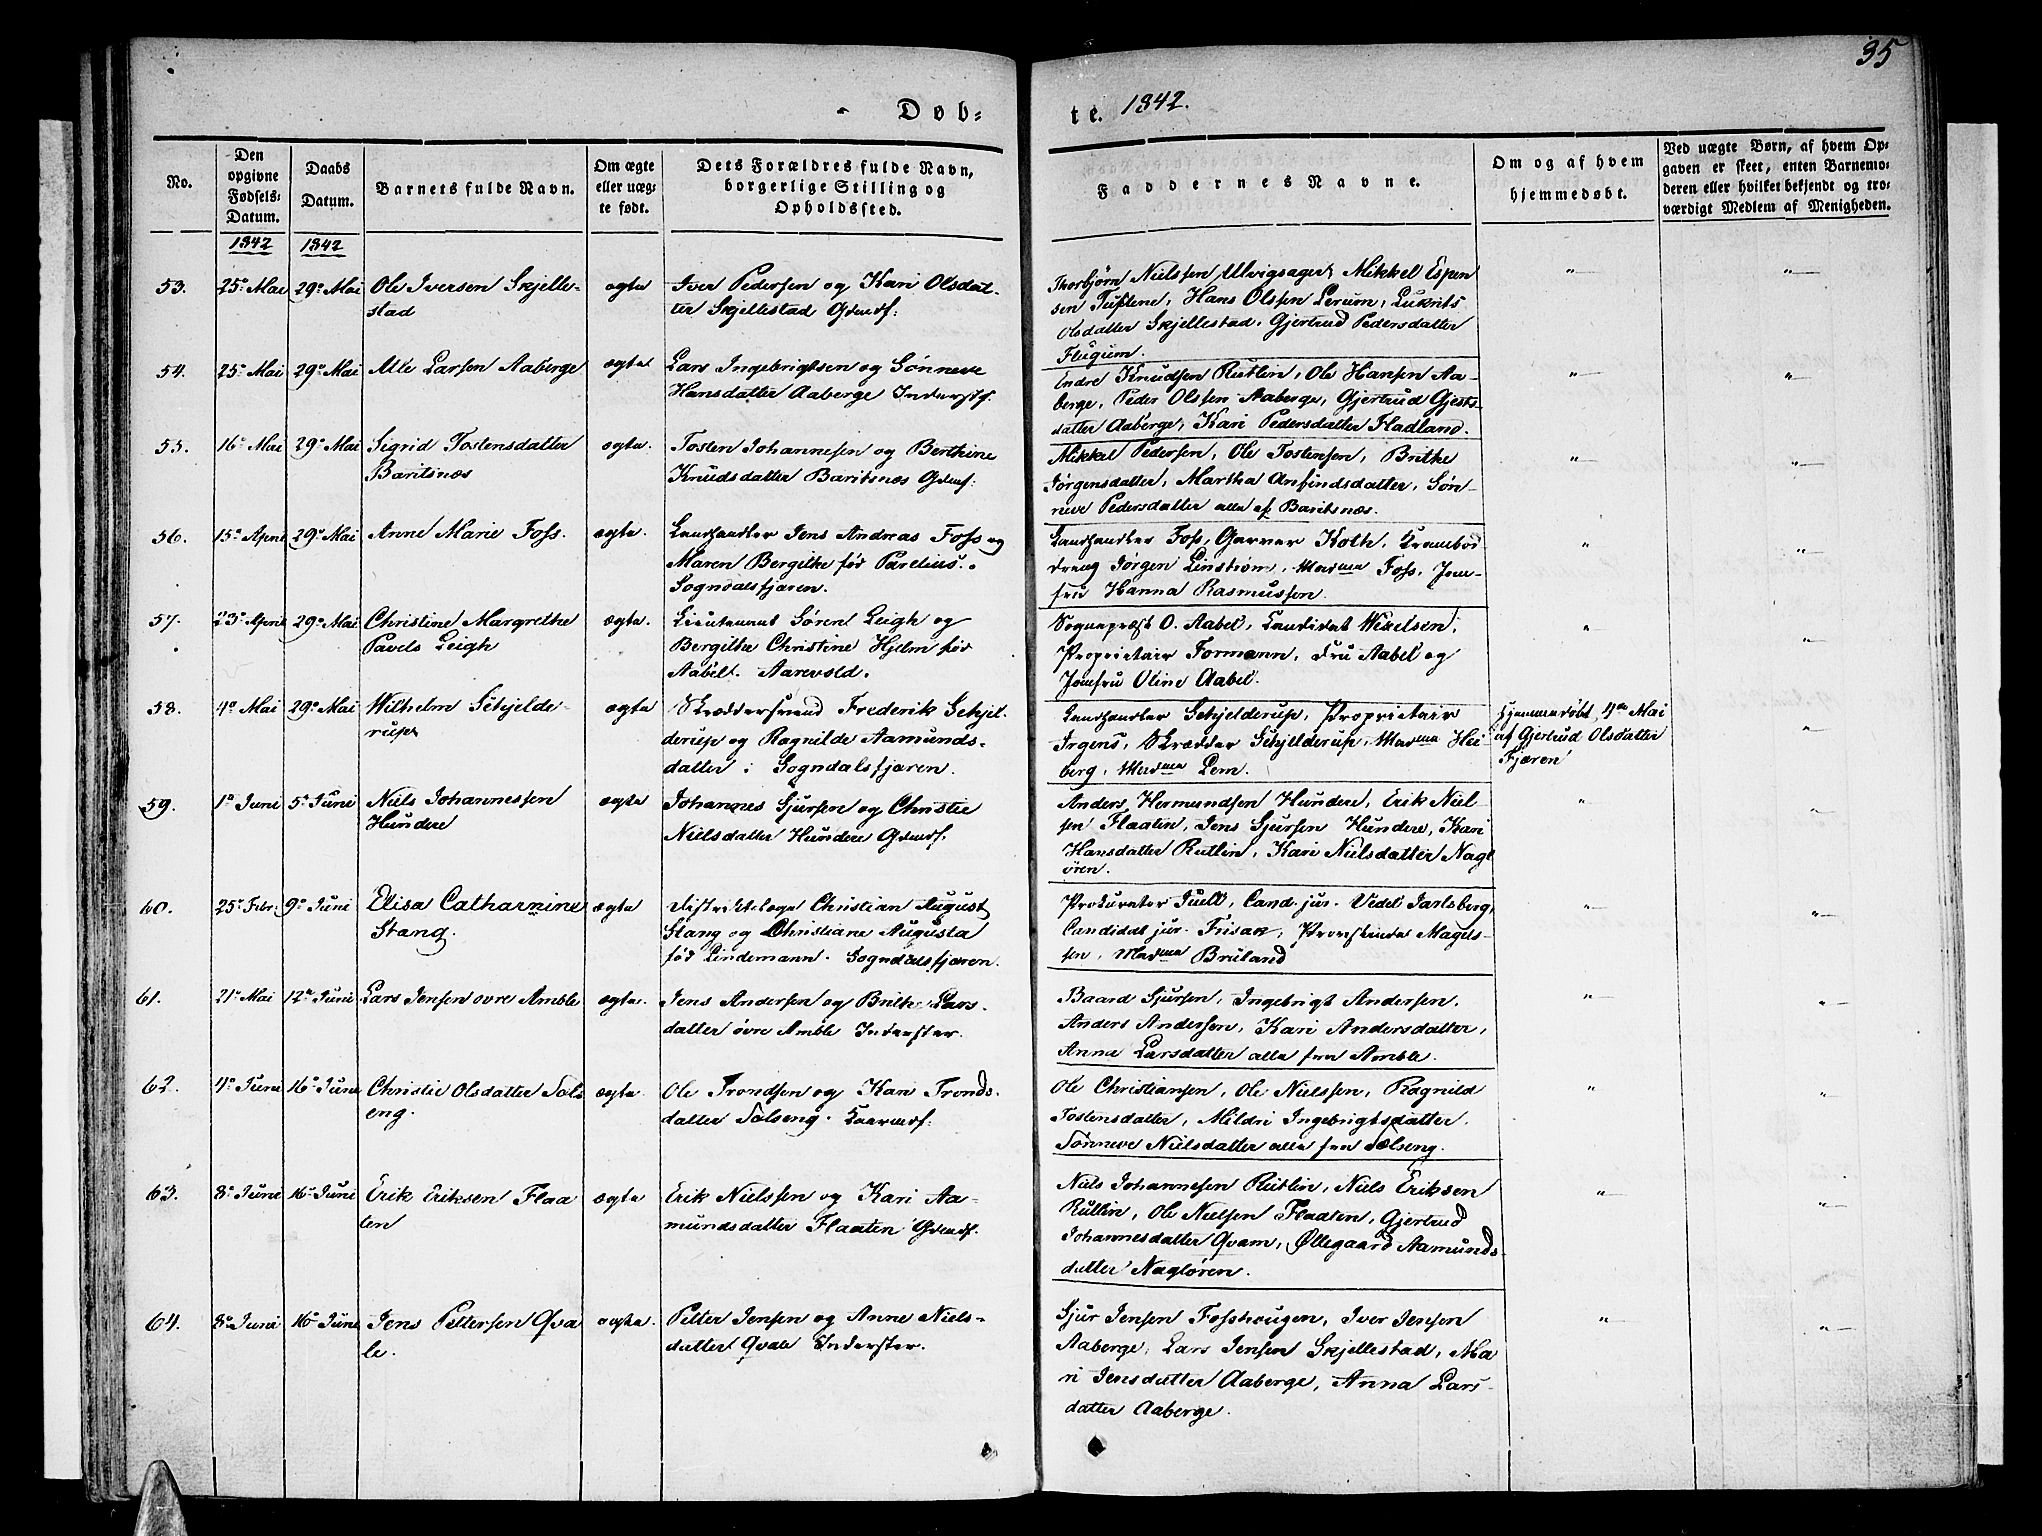 35
Døb-
te. 1842.
No.
Den
opgivne
Fødsels-
Datum.
Daabs
Datum.
Barnets fulde Navn.
Om ægte
eller uæg-
te født.
Dets Forældres fulde Navn,
borgerlige Stilling og
Opholdssted.
Faddernes Navne.
Om og af hvem
hjemmedøbt.
Ved uægte Børn, af hvem Op-
gaven er skeet, enten Barnemo-
deren eller hvilket bekjendt og tro-
værdigt Medlem af Menigheden.
1842
1842
53.
25de Mai
29de Mai
Ole Iversen Skjelle-
stad
ægte
Iver Pedersen og Kari Olsdat-
ter Skjellestad Gdmdf.
Thorbjørn Nielsen Ulvigsager Mikkel Espen
sen Tufstene, Hans Olsen Lerum,
Olsdatter Skjellestad. Gjertrud Pedersdatter
Flugum.
54.
25de Mai
29de Mai
Atle Larsen Aaberge
ægte
Lars Ingebrigtsen og Sønneve
Hansdatter Aaberge Inderstf.
Endre Knudsen Rutlin, Ole Hansen Aa-
berge, Peder Olssen Aaberge, Gjertrud Gjests-
datter Aaberge, Kari Pedersdatter Fladland.
55.
16de Mai
29de Mai
Sigrid Tostensdatter
Baritsnæs
ægte.
Tosten Johannesen og Berthine
Knudsdatter Baritsnæs Gdmf.
Mikkel Pedersen, Ole Tostensen, Brithe
Jørgensdatter, Martha Anfindsdatter, Søn-
neve Pedersdatter alle af Baritsnæs.
56.
15de April
29de Mai
Anne Marie Foss.
ægte.
Landhandler Jens Andreas Foss og
Maren Bergithe født Parelius.
Sogndalsfjæren.
Landhandler Foss, Garver Koth, Krambod
dreng Jørgen Linstrøm, Madme Foss, Jom-
fru Hanna Rasmussen.
57.
23de April
29de Mai
Christine Margrethe
Pavels Leigh
ægte.
Lieutenant Søren Leigh og
Bergithe Christine Hjelm født
Aabel. Aarevold.
Sognepræst O. Aabel, Candidat Wexelsen,
Proprietair Formann, Fru Aabel og
Jomfru Oline Aabel.
58.
4de Mai
29de Mai
Wilhelm Schjelde-
rup
ægte
Skræddersvend Frederik Schjel-
derup og Ragnilde Aamunds-
datter i Sogndalsfjæren.
Landhandler Schjelderup, Proprietair
Irgens, Skrædder Schjelderup, Madme Hei-
berg, Madme Lem.
Hjemmedøbt 4de Mai
af Gjertrud Olsdatter
Fjæren
59.
1de Juni
5te Juni
Niels Johannessen
Hundere
ægte
Johannes Sjursen og Christie
Nielsdatter Hundere Gdmdf.
Anders Hermundsen Hundere, Erik Niel-
sen Flaaten, Jens Sjursen Hundere, Kari
Hansdatter Rutlin, Kari Nielsdatter Nagl
øren.
60.
25de Febr.
9de Juni
Elisa Catharnine
Stang.
ægte
Distriktslæge Christian August
Stang og Christiane Augusta
født Lindemann. Sogndalsfjæren.
Prokurator Juell, Cand. jur. Vedel Jarlsberg,
Candidat jur. Frisak, Provstinde Magels-
sen, Madme Bruland
61.
21de Mai
12te Juni
Lars Jensen ovre Amble
ægte.
Jens Andersen og Brithe Lars-
datter øvre Amble Inderster.
Baard Sjursen, Ingebrigt Andersen,
Anders Andersen, Kari Andersdatter,
Anna Larsdatter alle fra Amble.
62.
4de Juni
16de Juni
Christie Olsdatter Sæls
eng.
ægte
Ole Trondsen og Kari Tronds-
datter Sælseng. Kaarmdf.
Ole Christiansen, Ole Nielssen, Ragnild
Tostensdatter, Mildri Ingebrigtsdatter,
Sønneve Nielsdatter alle fra Sælseng.
63.
8de Juni
16de Juni
Erik Eriksen Flaa
ten
ægte
Erik Nielssen og Kari Aa-
mundsdatter Flaaten Gdmdf.
Niels Johannesen Rutlin, Niels Eriksen
Rutlin, Ole Nielsen Flaaten, Gjertrud
Johannesdatter Qvam, Øllegaard Aamunds-
datter Nagløren.
64.
8de Juni
16de Juni
Jens Pettersen Qva
le.
ægte.
Petter Jensen og Anne Niels-
datter Qvale Inderster.
Sjur Jensen Fosshougen, Iver Jensen
Aaberge, Lars Jensen Skjellestad, Ma
ri Jensdatter Aaberge, Anna Lars-
datter Aaberge.